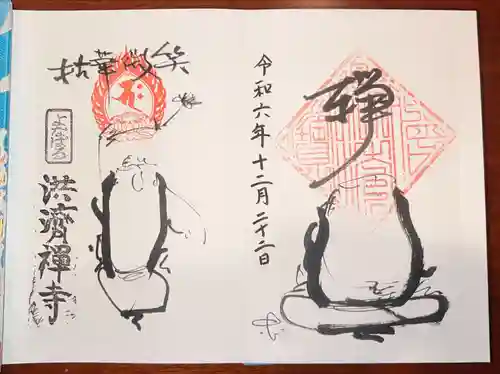 拈華微笑
よなばる
洪濟禪寺
禅
令和六年十二月二十二日